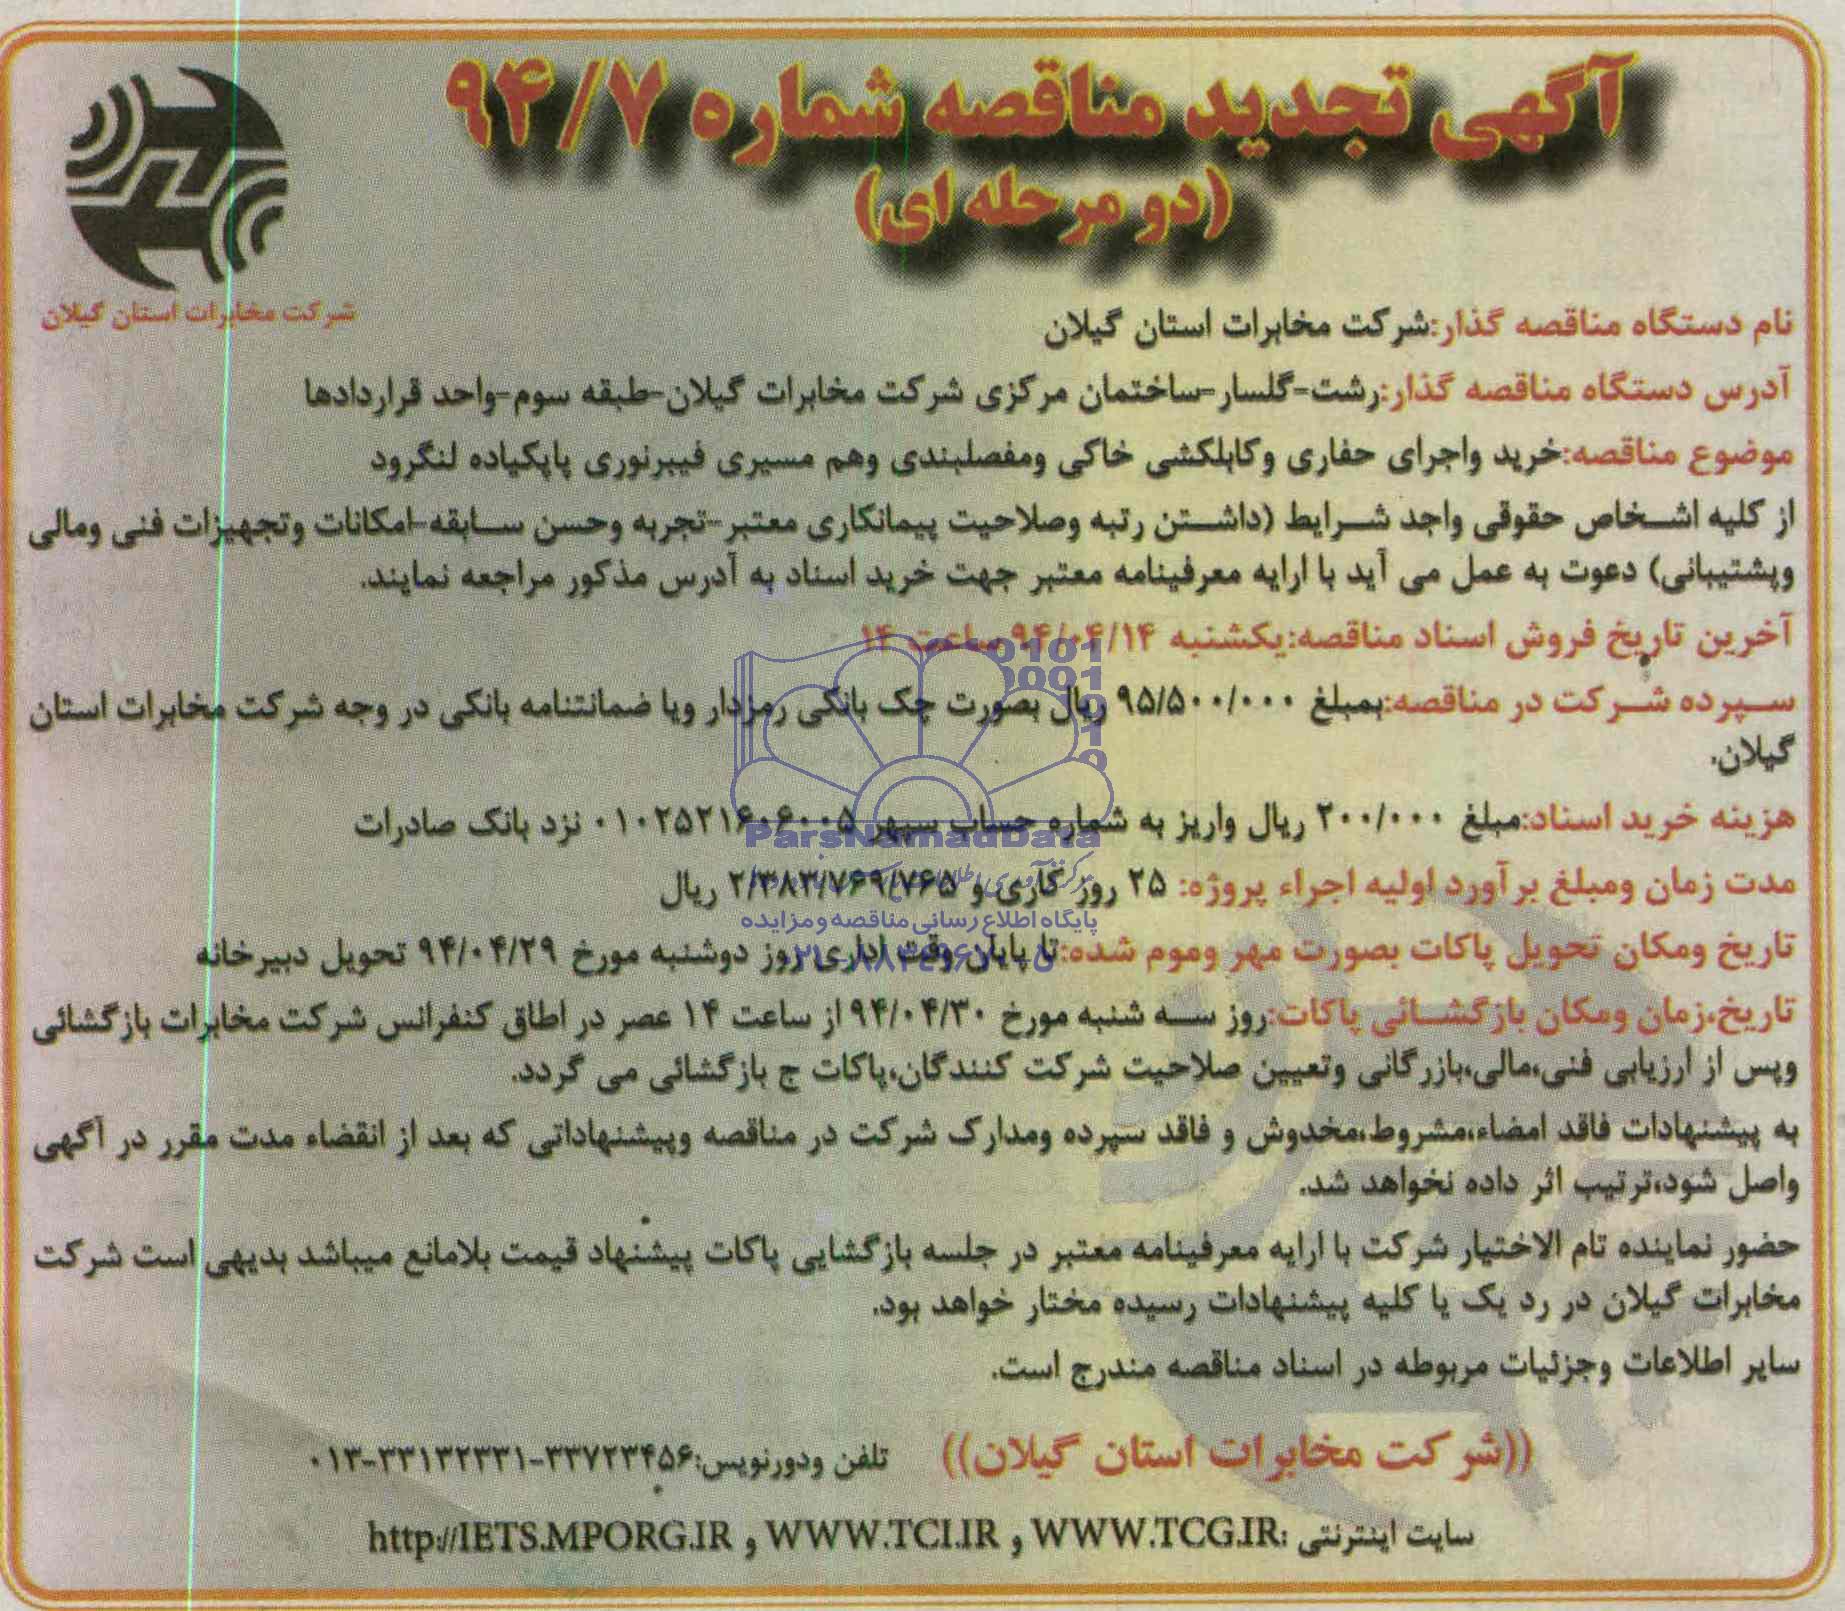 آگهی تجدید مناقصه شماره ۹۴/۷
(دو مرحله ای)
شرکت مخابرات استان گیلان
نام دستگاه مناقصه گذار:شرکت مخابرات استان گیلان
آدرس دستگاه مناقصه گذار:رشت-گلسار-ساختمان مرکزی شرکت مخابرات گیلان-طبقه سوم-واحد قراردادها
موضوع مناقصه:خرید واجرای حفاری وکابلکشی خاکی ومفصلبندی وهم مسیری فیبرنوری پاپکیاده لنگرود
از کلیه اشخاص حقوقی واجد شرایط (داشتن رتبه وصلاحیت پیمانکاری معتبر-تجربه وحسن سابقه-امکانات وتجهیزات فنی ومالی
وپشتیبانی) دعوت به عمل می آید با ارایه معرفینامه معتبر جهت خرید اسناد به آدرس مذکور مراجعه نمایند.
آخرین تاریخ فروش اسناد مناقصه:یکشنبه ۹۴/۰۴/۱۴ ساعت ۱۴
سپرده شرکت در مناقصه:بمبلغ ۹۵/۵۰۰/۰۰۰ ریال بصورت چک بانکی رمزدار ویا ضمانتنامه بانکی در وجه شرکت مخابرات استان
گیلان.
هزینه خرید اسناد:مبلغ ۲۰۰/۰۰۰ ریال واریز به شماره حساب سپهر ۰۱۰۲۵۲۱۶۰۶۰۰۵ نزد بانک صادرات
ParsNamadData
مدت زمان ومبلغ برآورد اولیه اجراء پروژه: ۲۵ روز کاری و ۲/۳۸۳/۷۶۹/۷۶۵ ریال
پایگاه اطلاع رسانی مناقصه و مزایده
تاریخ ومکان تحویل پاکات بصورت مهر وموم شده:تا پایان وقت اداری روز دوشنبه مورخ ۹۴/۰۴/۲۹ تحویل دبیرخانه
تاریخ،زمان ومکان بازگشائی پاکات:روز سه شنبه مورخ ۹۴/۰۴/۳۰ از ساعت ۱۴ عصر در اطاق کنفرانس شرکت مخابرات بازگشائی
وپس از ارزیابی فنی،مالی،بازرگانی وتعیین صلاحیت شرکت کنندگان،پاکات ج بازگشائی می گردد.
به پیشنهادات فاقد امضاء،مشروط،مخدوش و فاقد سپرده ومدارک شرکت در مناقصه وپیشنهاداتی که بعد از انقضاء مدت مقرر در آگهی
واصل شود،ترتیب اثر داده نخواهد شد.
حضور نماینده تام الاختیار شرکت با ارایه معرفینامه معتبر در جلسه بازگشایی پاکات پیشنهاد قیمت بلامانع میباشد بدیهی است شرکت
مخابرات گیلان در رد یک یا کلیه پیشنهادات رسیده مختار خواهد بود.
سایر اطلاعات وجزئیات مربوطه در اسناد مناقصه مندرج است.
((شرکت مخابرات استان گیلان)) تلفن ودورنویس:۳۳۷۲۳۴۵۶-۳۳۱۳۲۳۳۱-۰۱۳
سایت اینترنتی :WWW.TCG.IR و WWW.TCI.IR و http://IETS.MPORG.IR